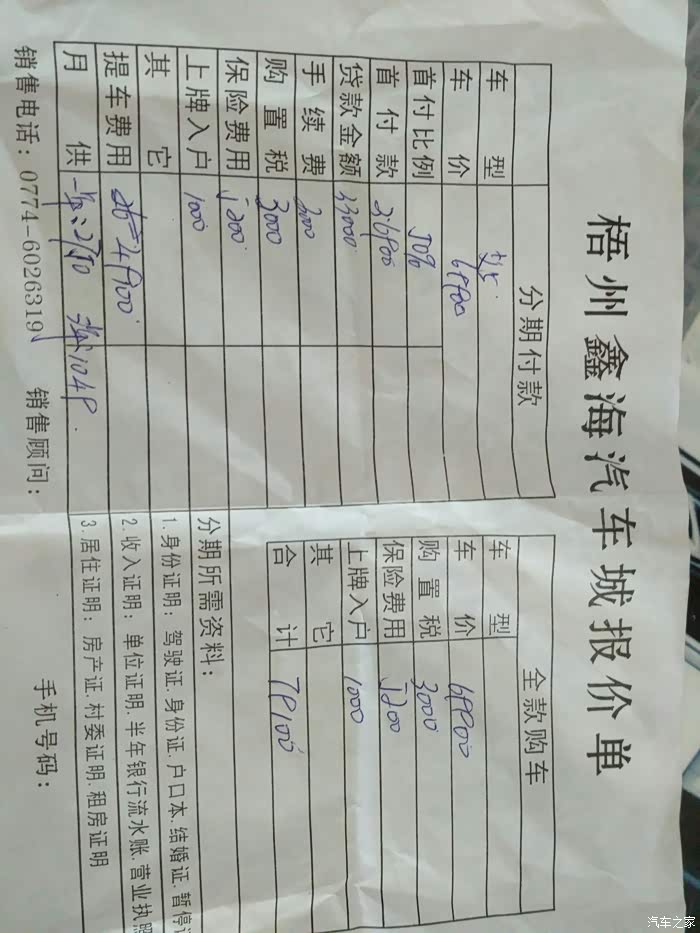 梧州鑫海汽车城报价单
分期付款
车型
车价 69900
首付比例 50%
首付款 36900
贷款金额 33000
手续费 2000
购置税 3000
保险费用 5200
上牌入户 1000
其它
提车费用 4900
月供 2750 1049
销售电话:0774-6026319 销售顾问: 手机号码:
全款购车
车型
车价 69900
购置税 3000
保险费用 5200
上牌入户 1000
其它
合计 79100
分期所需资料:
1.身份证明:驾驶证.身份证.户口本.结婚证.暂停
2.收入证明:单位证明.半年银行流水账.营业执照
3.居住证明:房产证.村委证明.租房证明
汽车之家